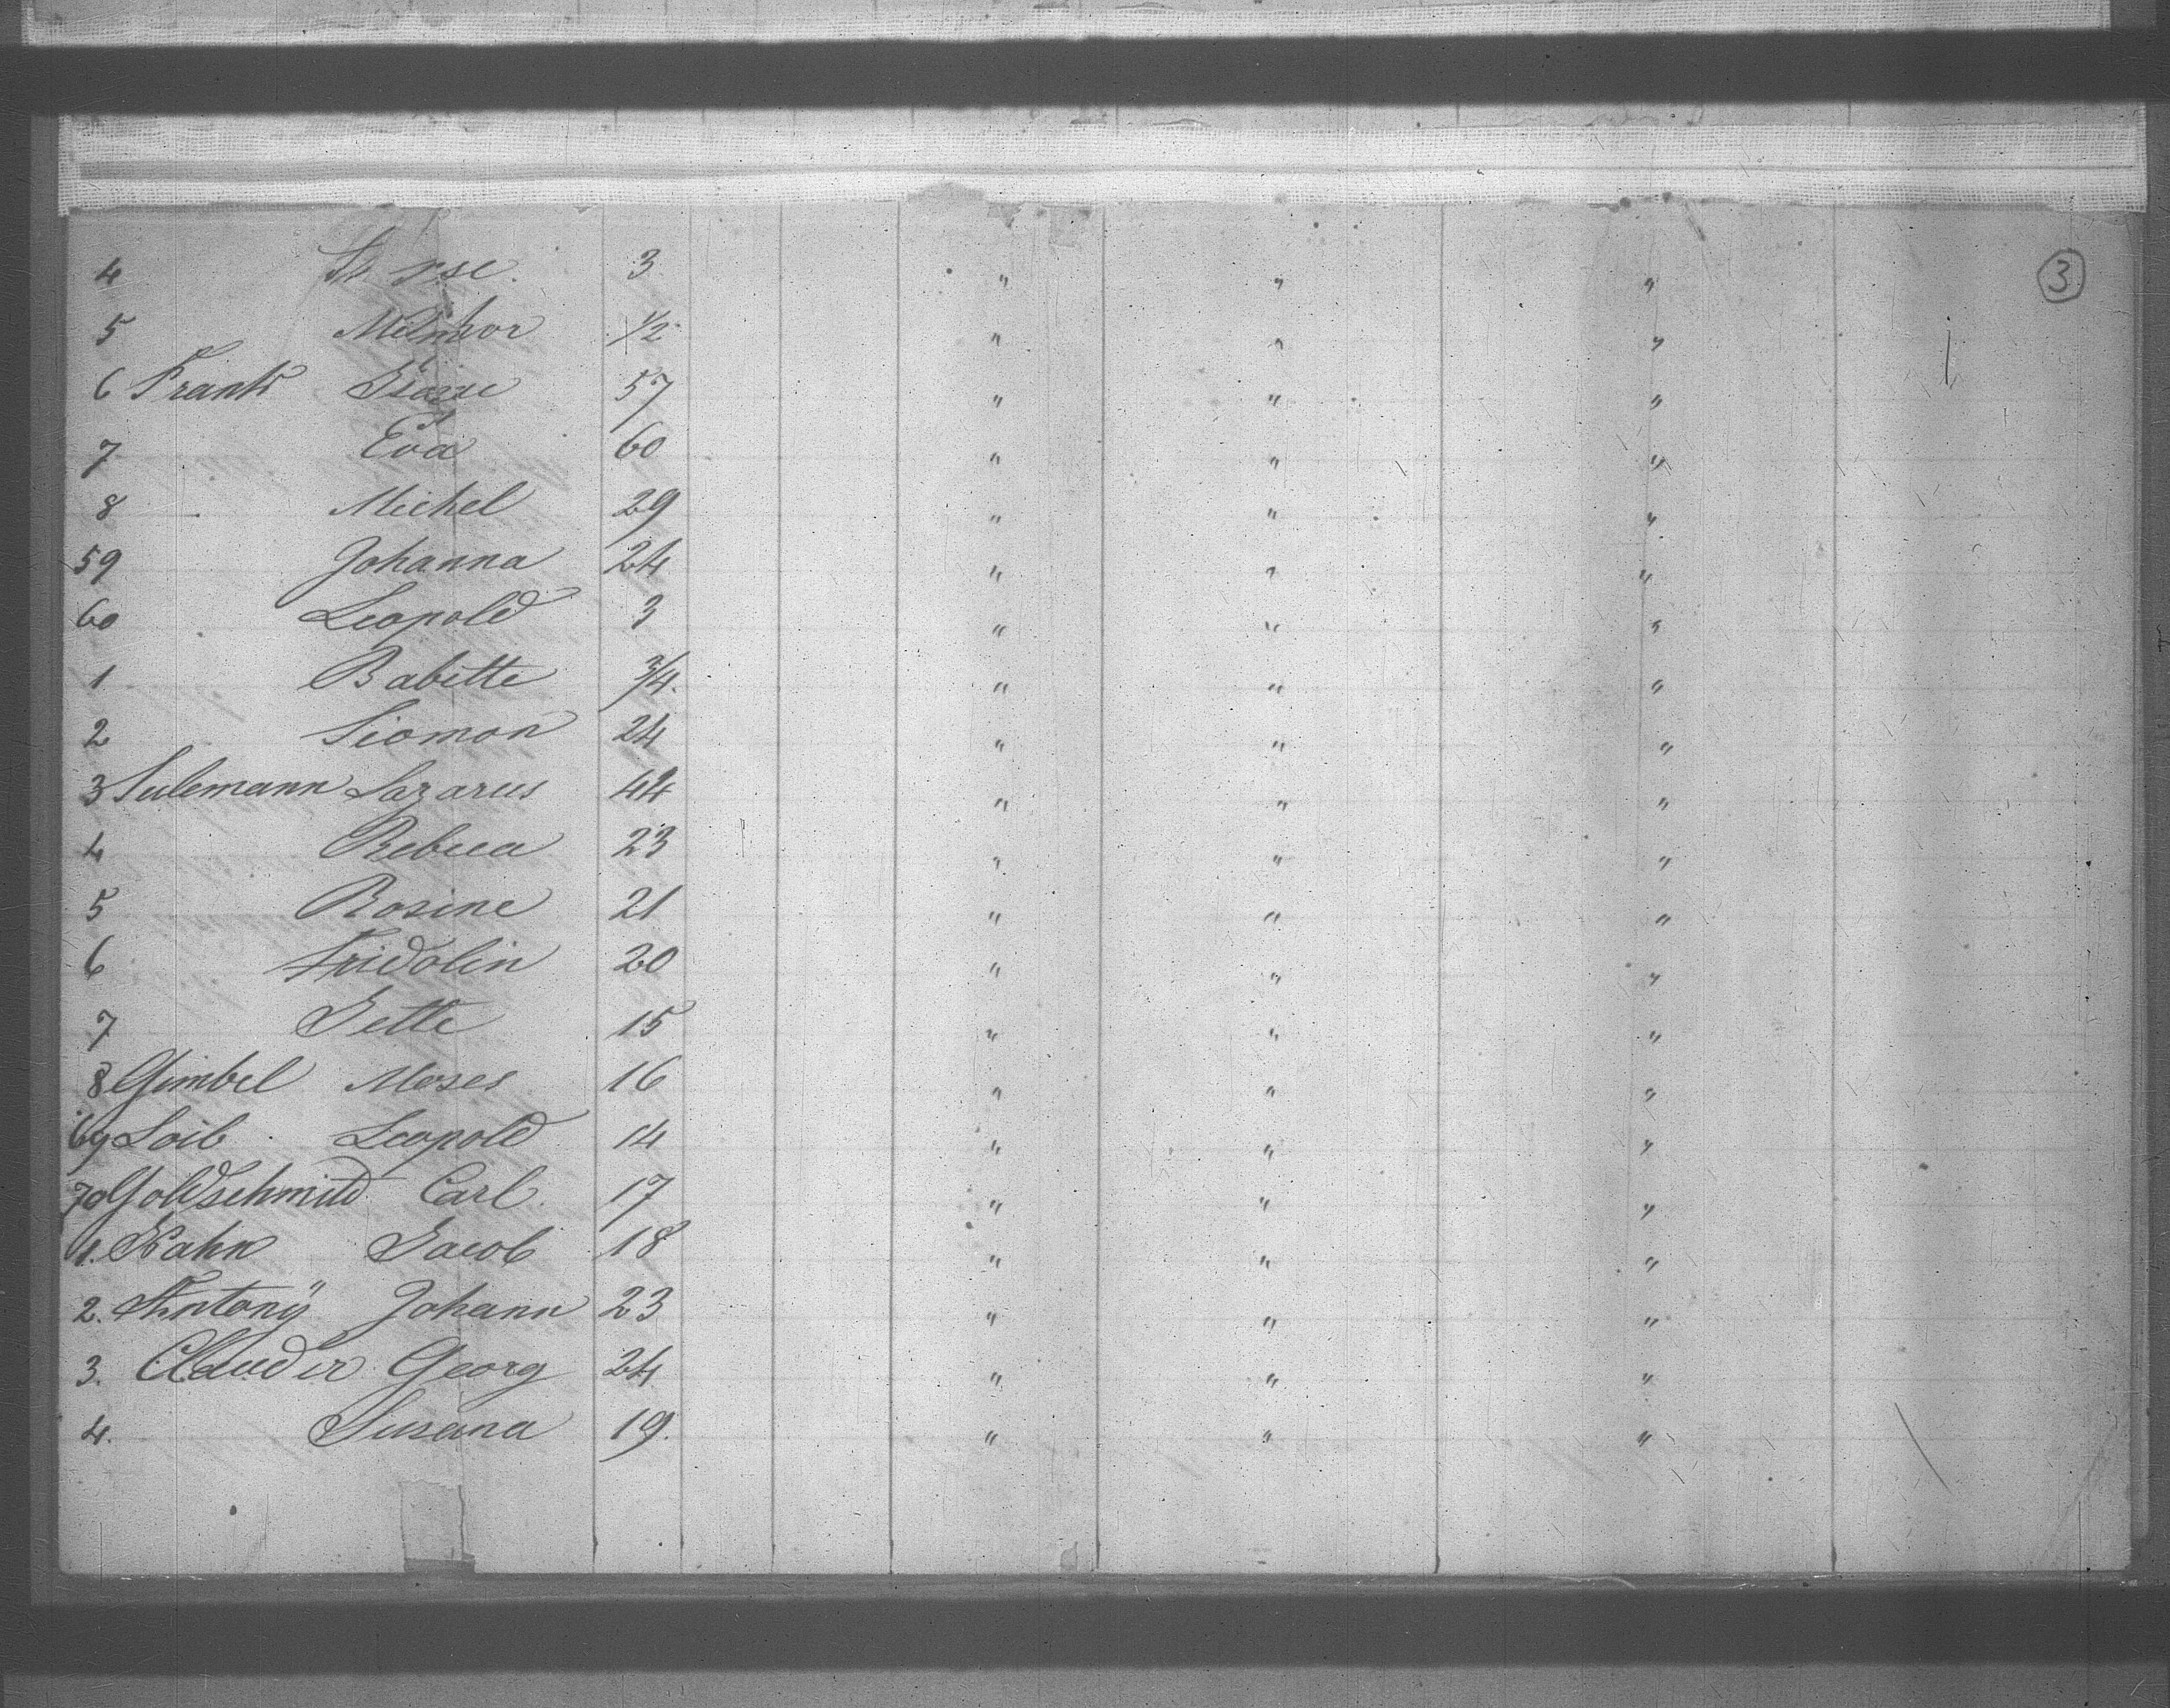 4 3 " " " 3
5 1/2 " " "
6 57 " " "
7 Eva 60 " " "
8 Michel 29 " " "
59 Johanna 24 " " "
60 Leopold 3 " " "
1 Babette 3/4. " " "
2 Siomon 24 " " "
3 Sulemann Lazarus 44 " " "
4 Rebeca 23 " " "
5 Rosine 21 " " "
6 Fridolin 20 " " "
7 Jette 15 " " "
8 Gimbel Moses 16 " " "
69 Loib Leopold 14 " " "
70 Goldschmitd Carl 17 " " "
1. Kahn Jacob 18 " " "
2. Antonÿ Johann 23 " " "
3. Georg 24 " " "
4. Susana 19. " " "